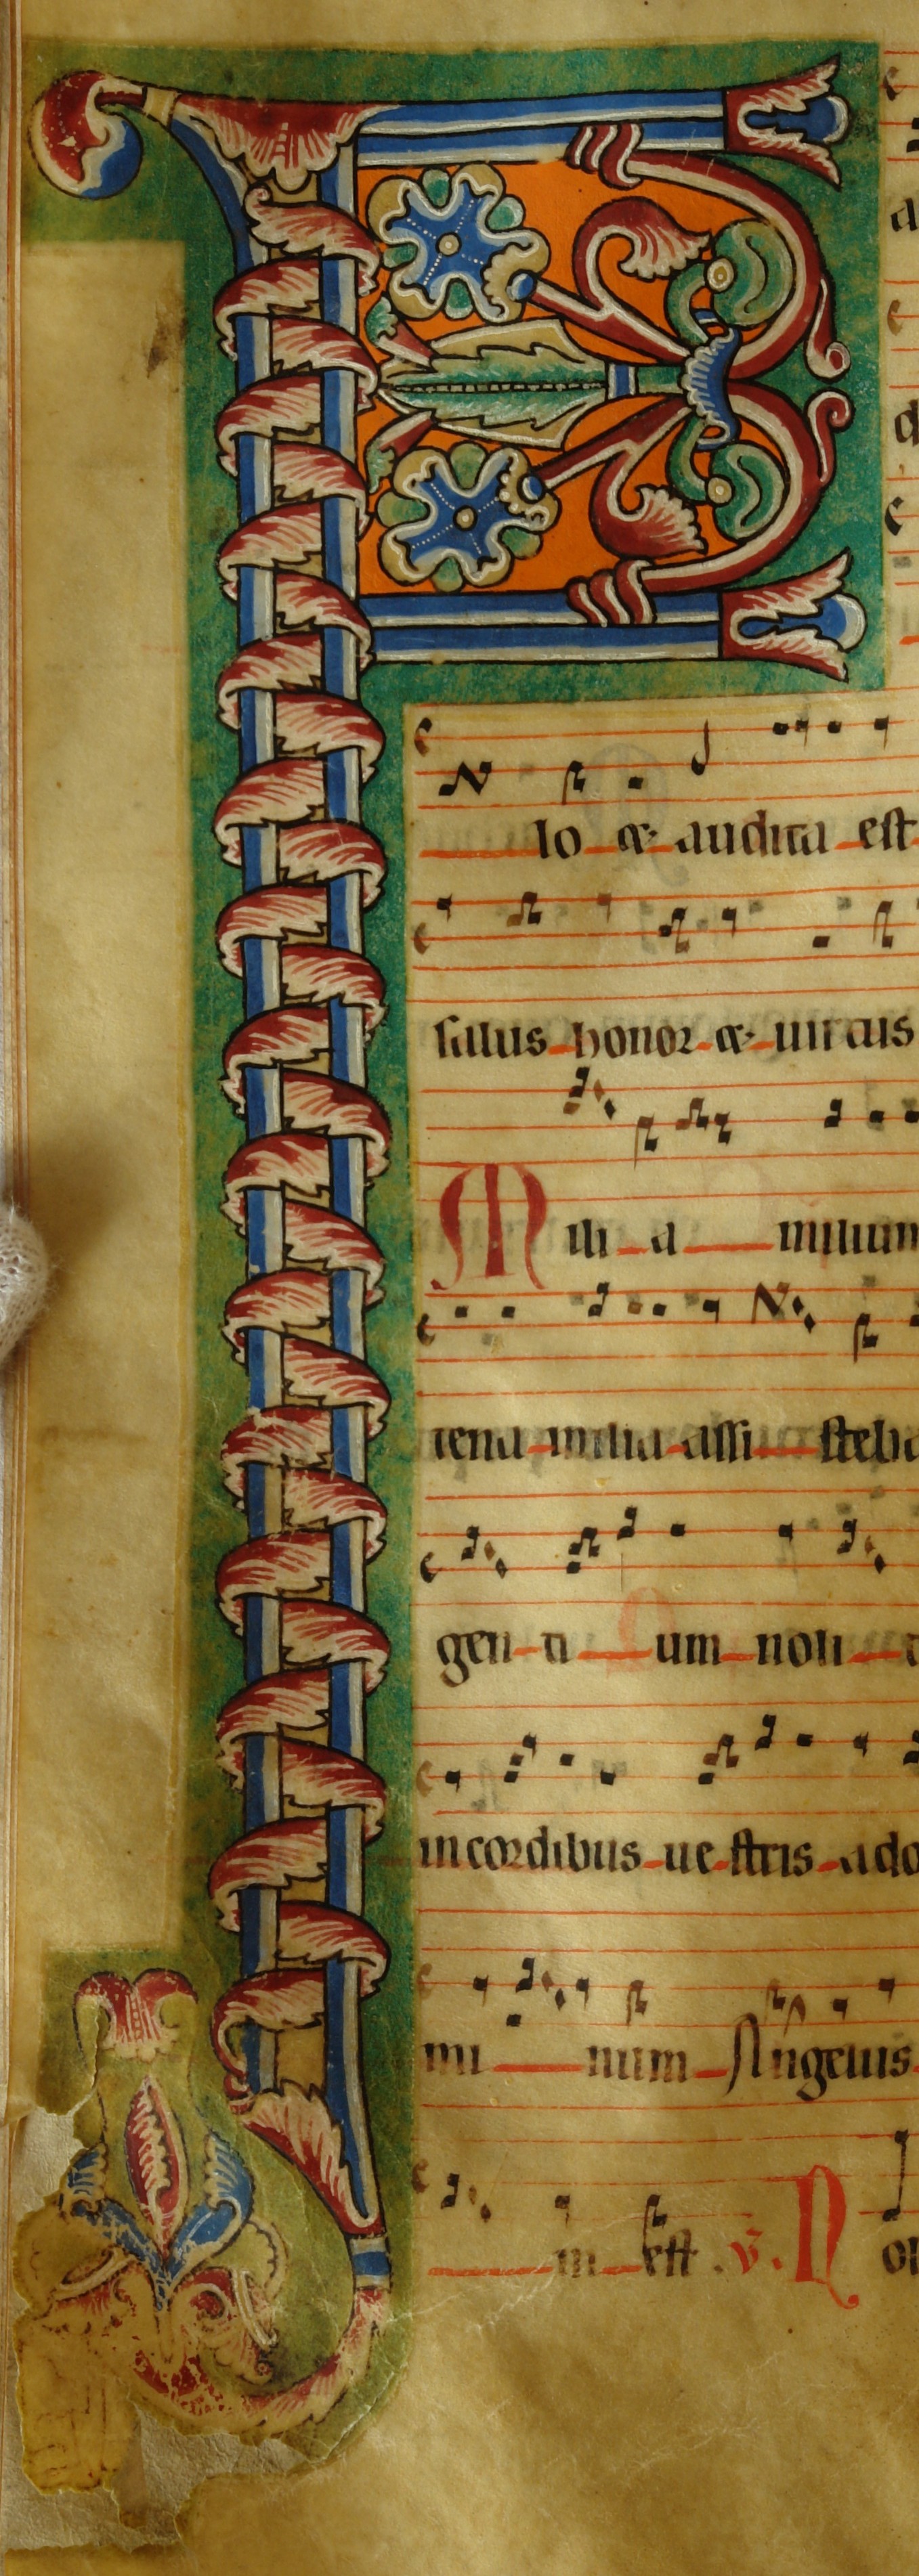 F
lo & audita est
salus honor & uirtus
Mili a milium
tena milia assi steba
gen ti um noli
in cordibus ue stris ado
mi num Angelus
m est . v. N